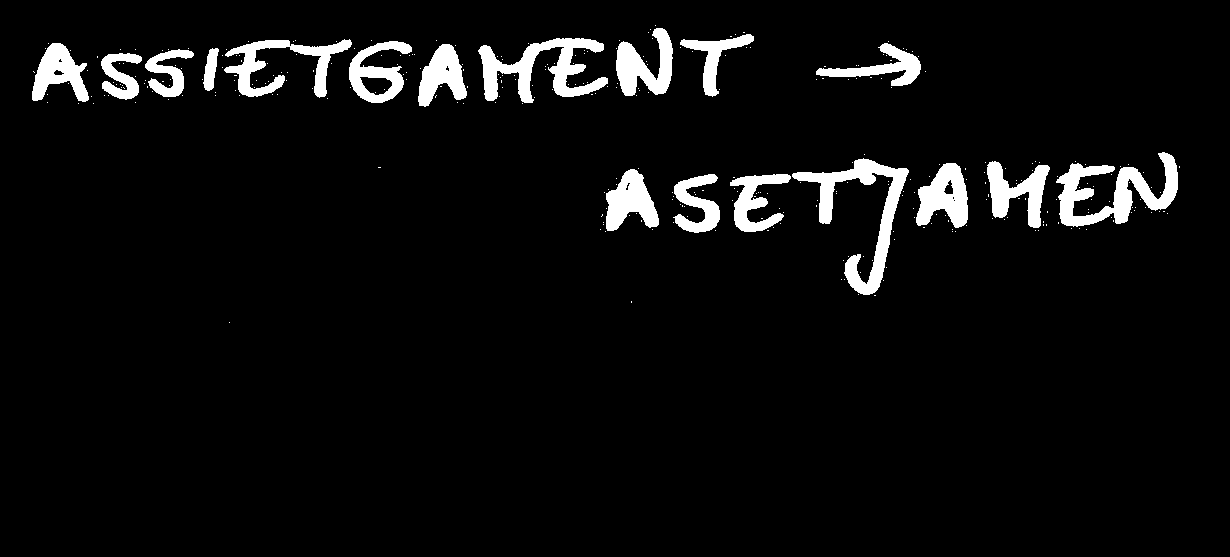 ASSIETGAMENT →
ASETJAMEN